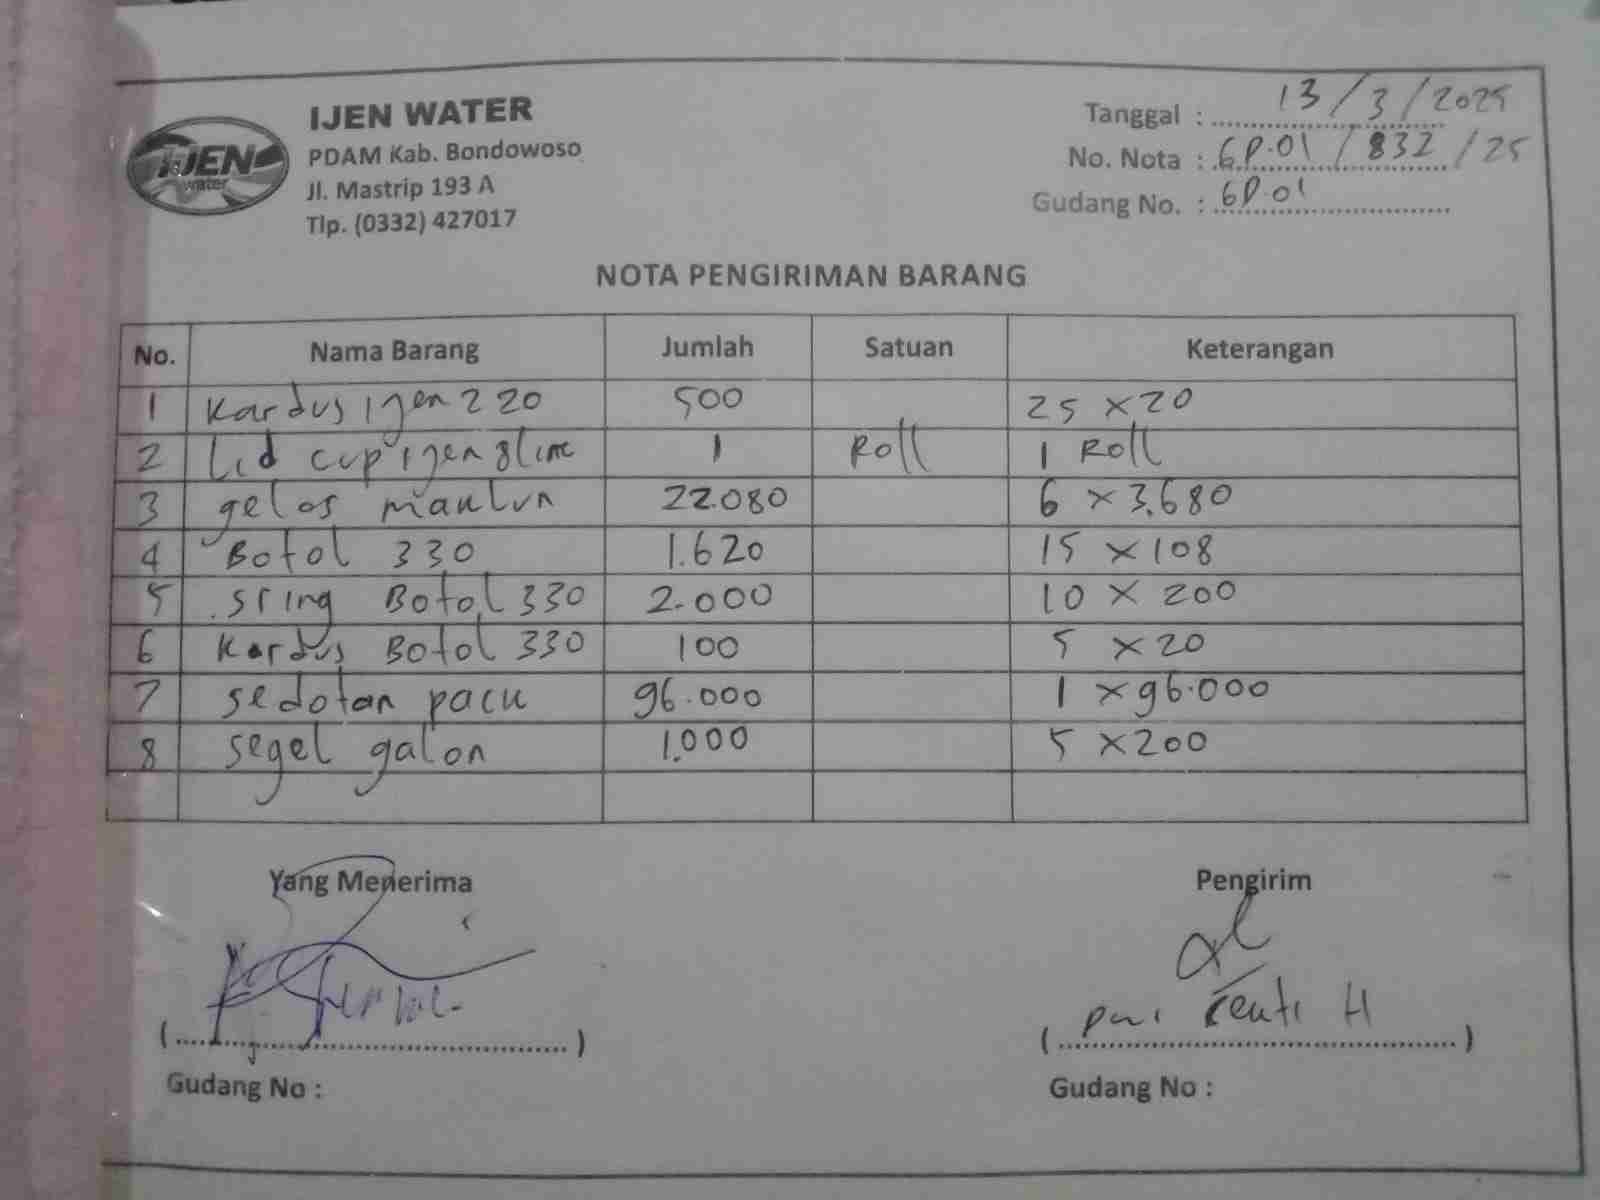 IJEN water
IJEN WATER
PDAM Kab. Bondowoso
Jl. Mastrip 193 A
Tlp. (0332) 427017
Tanggal : 13/3/2025
No. Nota : GP.01/832/25
Gudang No. : GP.01
NOTA PENGIRIMAN BARANG
No. Nama Barang Jumlah Satuan Keterangan
1 Kardus Ijen 220 500 25 x 20
2 Lid cup ijen 8line 1 Roll 1 Roll
3 gelas maklun 22.080 6 x 3.680
4 Botol 330 1.620 15 x 108
5 Sring Botol 330 2.000 10 x 200
6 Kardus Botol 330 100 5 x 20
7 sedotan pacu 96.000 1 x 96.000
8 segel galon 1.000 5 x 200
Yang Menerima Pengirim
H
Gudang No : Gudang No :